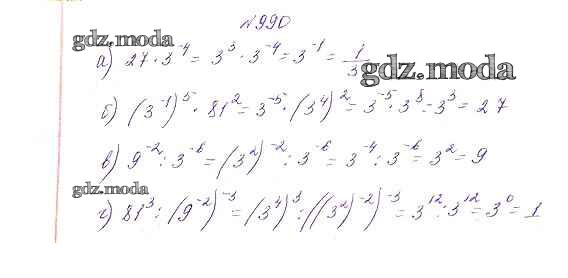 №990
gdz.moda
а) 27 · 3⁻⁴ = 3³ · 3⁻⁴ = 3⁻¹ = 1/3
gdz.moda
б) (3⁻¹)⁵ · 81² = 3⁻⁵ · (3⁴)² = 3⁻⁵ · 3⁸ = 3³ = 27
в) 9⁻² : 3⁻⁶ = (3²)⁻² : 3⁻⁶ = 3⁻⁴ : 3⁻⁶ = 3² = 9
gdz.moda
г) 81³ : (9⁻²)⁻³ = (3⁴)³ : ((3²)⁻²)⁻³ = 3¹² : 3¹² = 3⁰ = 1